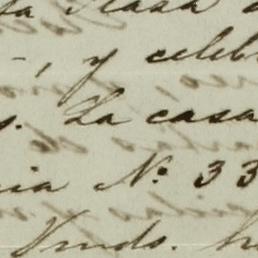 Plaza
-, y celeb
s. La casa
ia Nº 33
Vmds. h